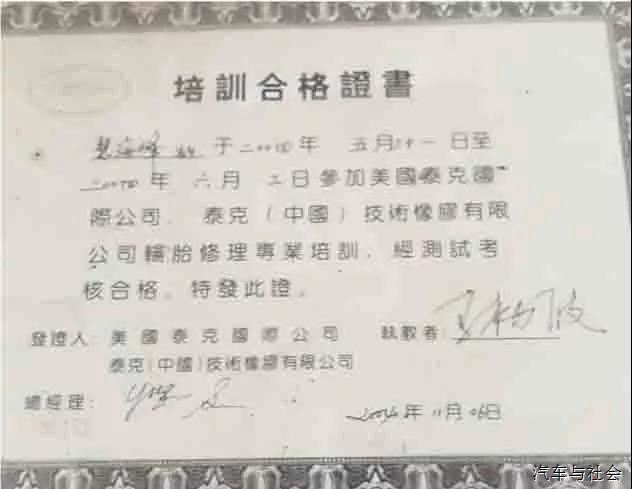 培訓合格證書
于二00四年 五月廿一日至
二00四年 六月 二日參加美國泰克國
際公司、泰克(中國)技術橡膠有限
公司輪胎修理專業培訓,經測試考
核合格。特發此證。
發證人:美國泰克國際公司 執教者:
泰克(中國)技術橡膠有限公司
總經理:
年11月06日
汽车与社会